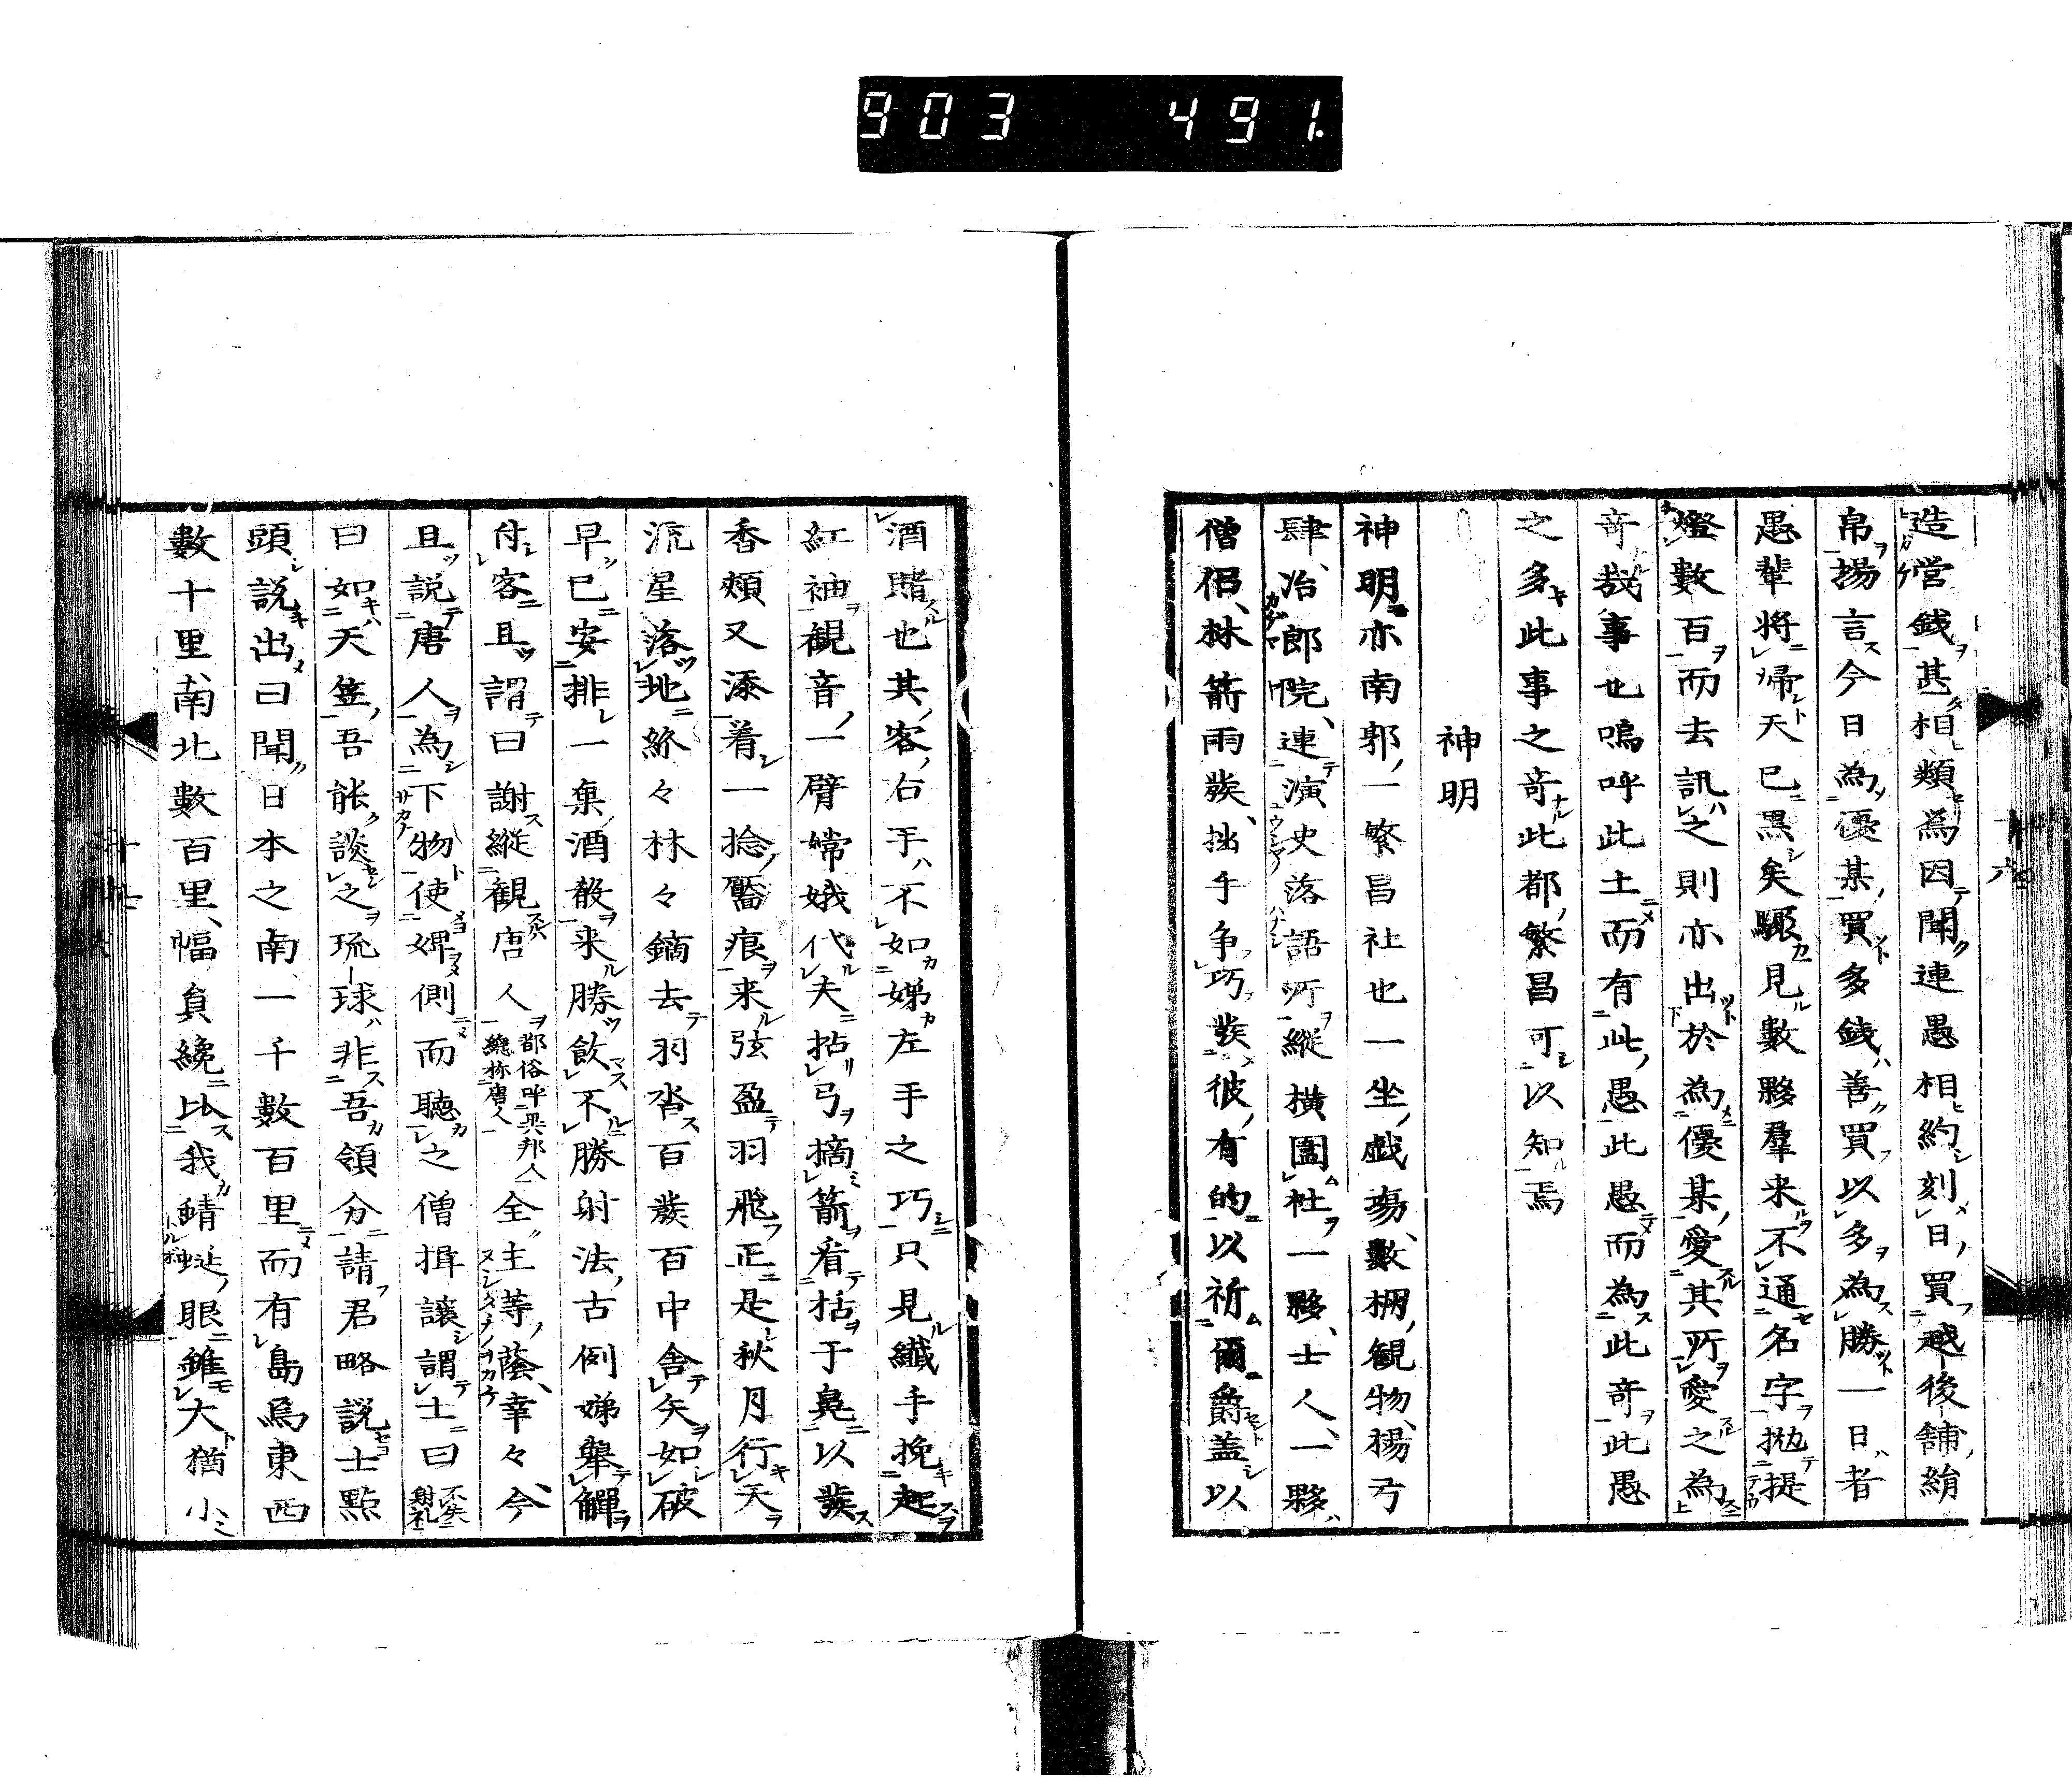 903 491.
造営銭甚相類為因聞連愚相約刻日買越後舗絹
帛揚言今日為優某買多銭善買以多為勝一日者
愚輩将帰天已黒矣驟見數夥羣来不通名字抛提
燈數百而去訊之則亦出於為優某愛其所愛之為
奇哉事也嗚呼此土而有此愚此愚而為此奇此愚
之多此事之奇此都繁昌可以知焉
神明
神明亦南郭一繁昌社也一坐戯場數棚観物楊弓
肆冶郎院連演史落語所縦横圍社一夥士人一夥
僧侶林箭雨發拙手争巧發彼有的以祈爾爵盖以
酒賭也其客右手不如娣左手之巧只見纎手挽起
紅袖観音一臂嫦娥代夫拈弓摘箭看括于鳬以發
香頬又添着一捻靨痕来弦盈羽飛正是秋月行天
流星落地絲々林々鏑去羽沓百發百中舎矢如破
早已安排一棄酒散来勝飲不勝射法古例娣擧觶
侑客且謂曰謝縦観唐人都俗呼異邦人總称唐人全主等蔭幸々今
且説唐人為下物使婢側而聽之僧揖譲謂士曰不失射礼
曰如天笠吾能談之琉球非吾領分請君略説士點
頭説出曰聞日本之南一千數百里而有島爲東西
數十里南北數百里幅員纔比我蜻蜓眼雖大猶小